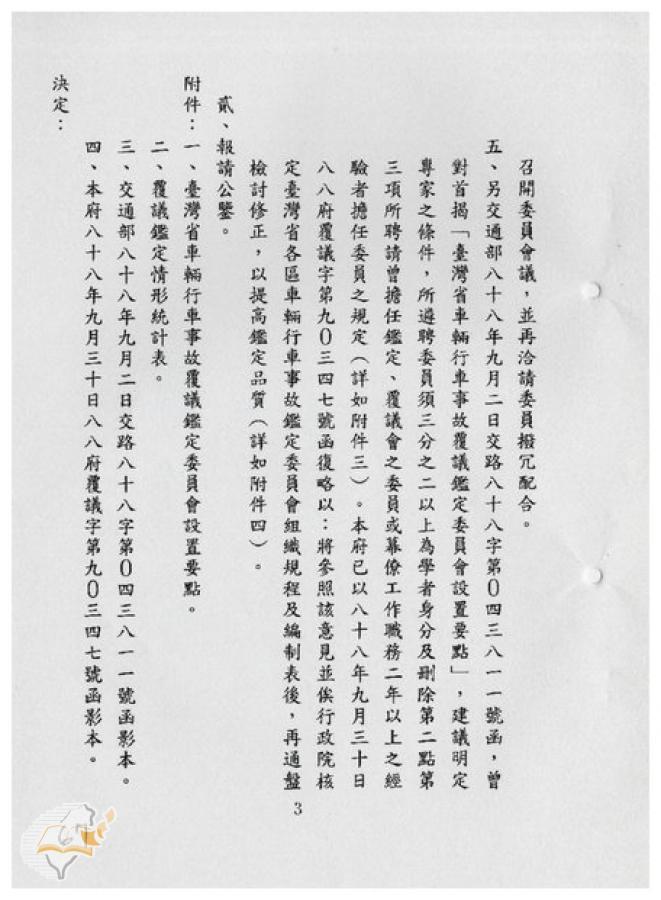 召開委員會議，並再洽請委員撥冗配合。
五、另交通部八十八年九月二日交路八十八字第0四三八一一號函，曾
對首揭「臺灣省車輛行車事故覆議鑑定委員會設置要點」，建議明定
專家之條件，所遴聘委員須三分之二以上為學者身分及刪除第二點第
三項所聘請曾擔任鑑定、覆議會之委員或幕僚工作職務二年以上之經
驗者擔任委員之規定（詳如附件三）。本府已以八十八年九月三十日
八八府覆議字第九0三四七號函復略以：將參照該意見並俟行政院核
定臺灣省各區車輛行車事故鑑定委員會組織規程及編制表後，再通盤
檢討修正，以提高鑑定品質（詳如附件四）。
貳、報請公鑒。
附件：一、臺灣省車輛行車事故覆議鑑定委員會設置要點。
二、覆議鑑定情形統計表。
三、交通部八十八年九月二日交路八十八字第0四三八一一號函影本。
四、本府八十八年九月三十日八八府覆議字第九0三四七號函影本。
決定：
3